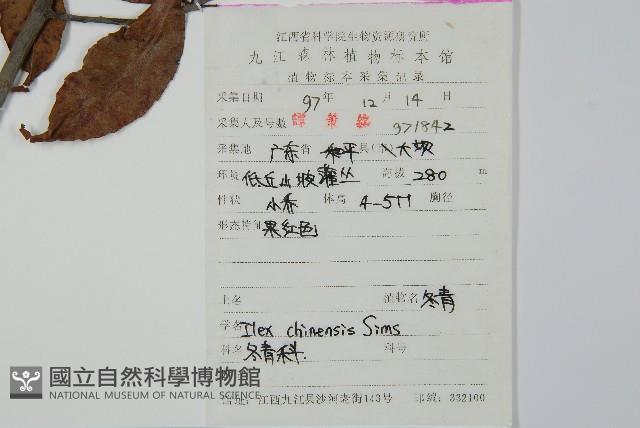 江西省科学院生物资源研究所
九江森林植物标本馆
植物标本采集记录
采集日期 97年 12月 14日
采集人及号数 譚策銘 971842
采集地 广东省 和平县(市)大坝
环境 低丘山坡灌丛 海拔 280 m
性状 小乔 体高 4-5m 胸径
形态特征 果红色
土名 植物名 冬青
学名 Ilex chinensis Sims
科名 冬青科. 科号
國立自然科學博物館
NATIONAL MUSEUM OF NATURAL SCIENCE
馆址:江西九江县沙河老街143号 邮编:332100